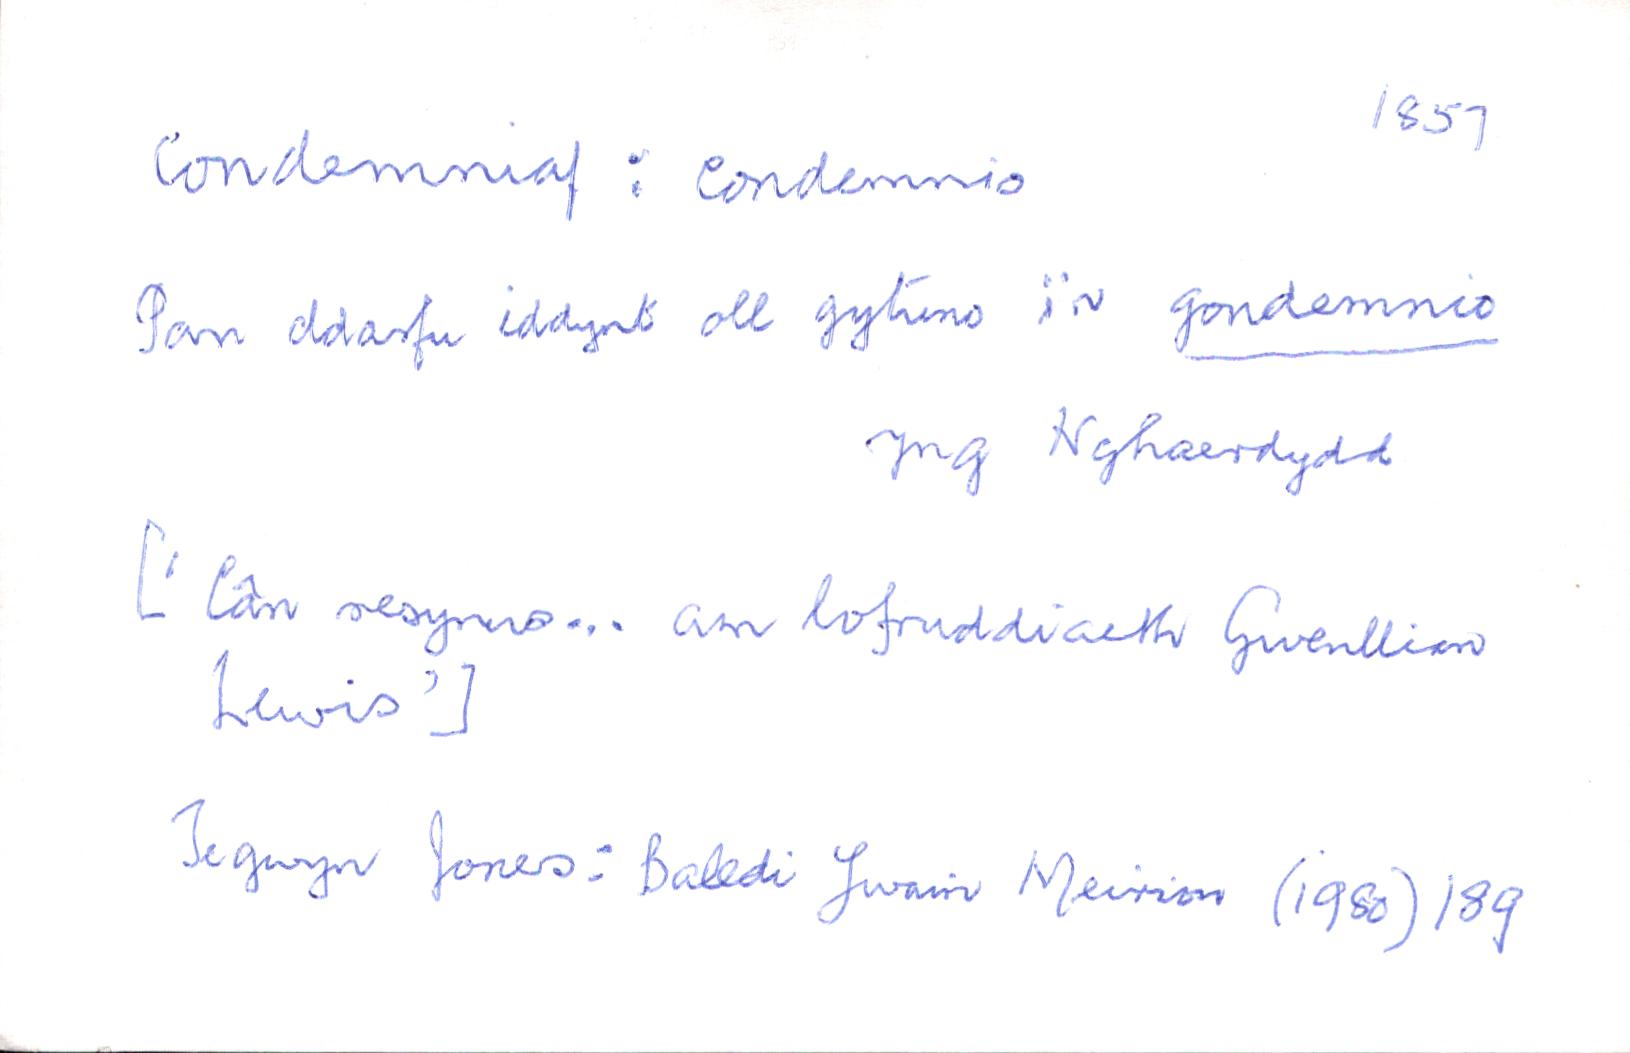 1857
Condemniaf : Condemnio
Pan ddarfu iddynt oll gytuno i'w gondemnio
yng Nghaerdydd
[' Cân resynus... am lofruddiaeth Gwenllian
Lewis']
Tegwyn Jones: Baledi Ywain Meirion (1980) 189